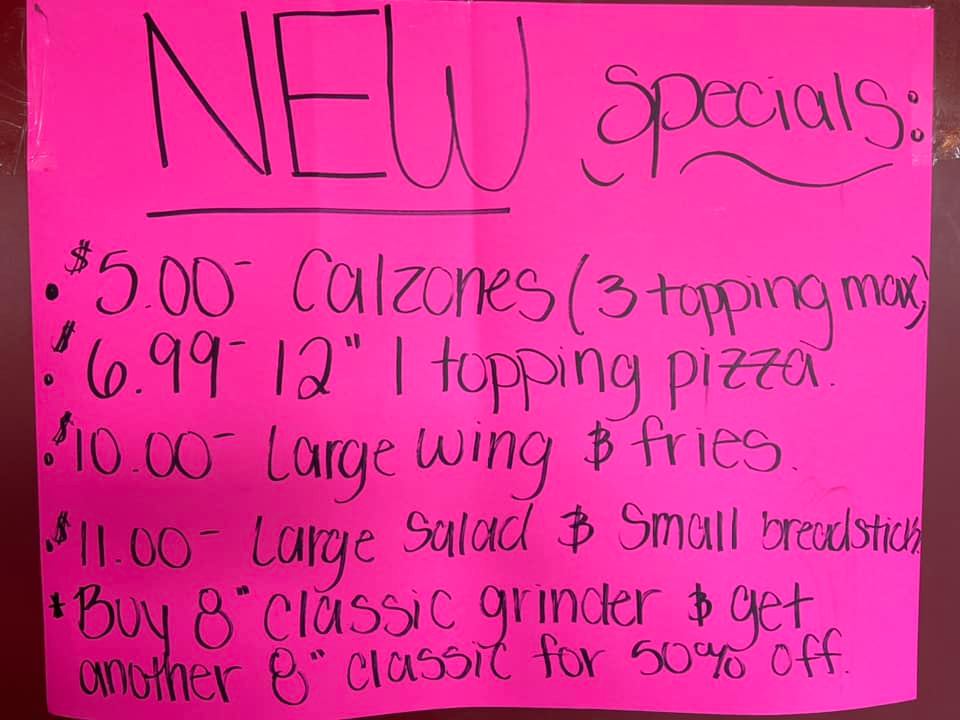 NEW Specials:
• $5.00- Calzones (3 topping max)
• $6.99- 12" 1 topping pizza.
• $10.00- Large wing & fries.
• $11.00- Large Salad & Small breadstick.
* Buy 8" classic grinder & get
another 8" classic for 50% off.